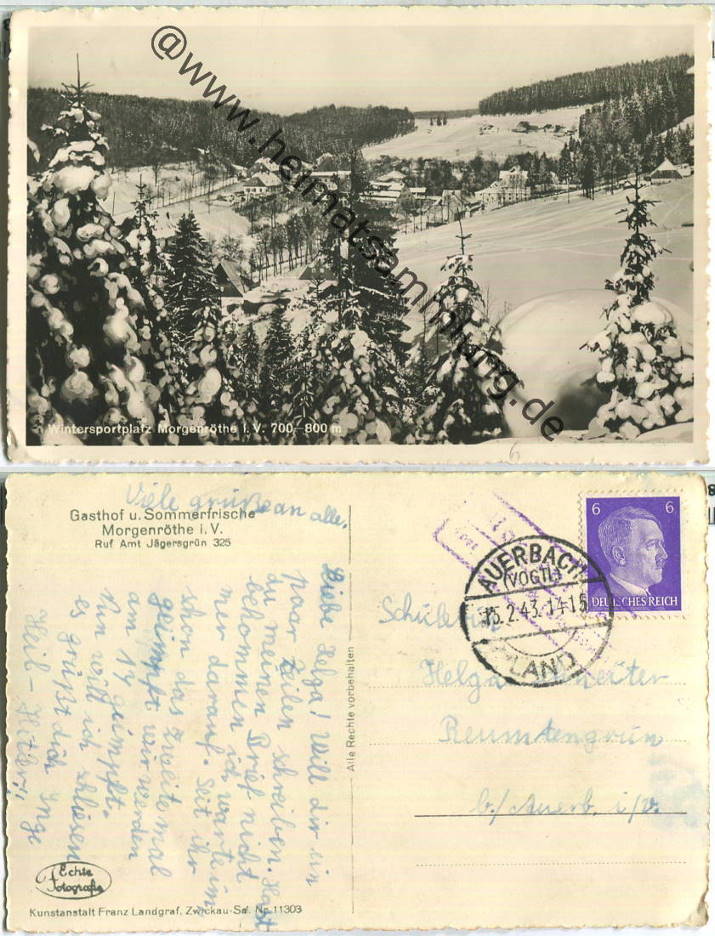 @www.heimatsammlung.de
Wintersportplatz Morgenröthe i. V. 700-800 m
6
Viele grüße an alle,
Gasthof u. Sommerfrische
Morgenröthe i. V.
Ruf Amt Jägersgrün 325
Liebe Helga! Will dir ein
paar Zeilen schreiben. Hast
du meinen Brief nicht
bekommen ich warte im
mer darauf. Seit ihr
schon das zweite mal
geimpft wir werden
am 17 geimpft.
Nun will ich schliesen
es grüßt dich Inge
Heil-Hitler!
Alle Rechte vorbehalten
Echte
Fotografie
Kunstanstalt Franz Landgraf, Zwickau-Sa. Nr. 11303
6 6
DEUTSCHES REICH
AUERBACH
(VOGTL)
15.2.43.14-15
LAND
Schülerin
Helga
Reumtengrün
b/Auerb. i/V.